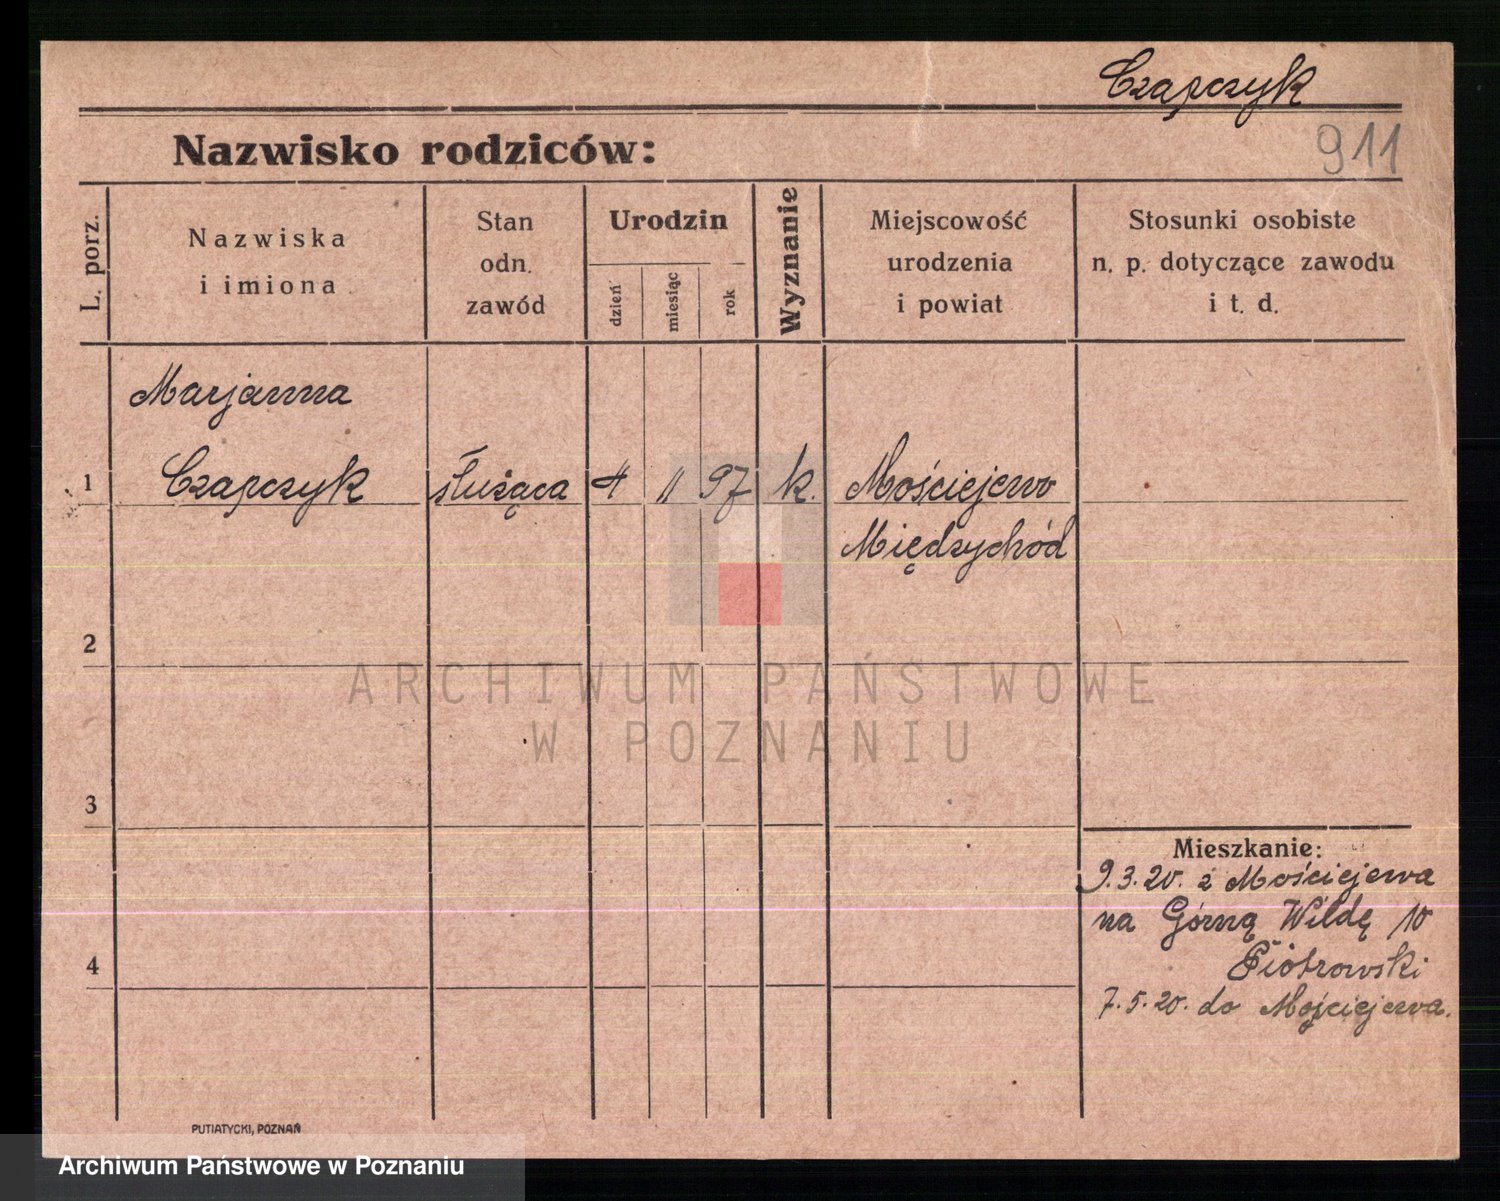 Czapczyk
Nazwisko rodziców:
911
L. porz.
Nazwiska
i imiona
Stan
odn.
zawód
Urodzin
dzień
miesiąc
rok
Wyznanie
Miejscowość
urodzenia
i powiat
Stosunki osobiste
n. p. dotyczące zawodu
i t. d.
Marjanna
1 Czapczyk służąca 4 11 97 k. Mościejewo
Międzychód
2
ARCHIWUM PAŃSTWOWE
W POZNANIU
3
Mieszkanie:
9.3.20. z Mościejewa
na Górną Wildę 10
4
Piotrowski
7.5.20. do Mościejewa.
PUTIATYCKI, POZNAŃ
Archiwum Państwowe w Poznaniu